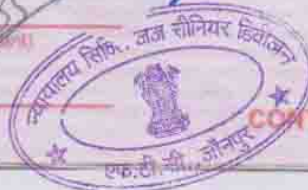 न्यायालय सिवि. जज सीनियर डिवीजन
एफ.टी.सी., जौनपुर
CON